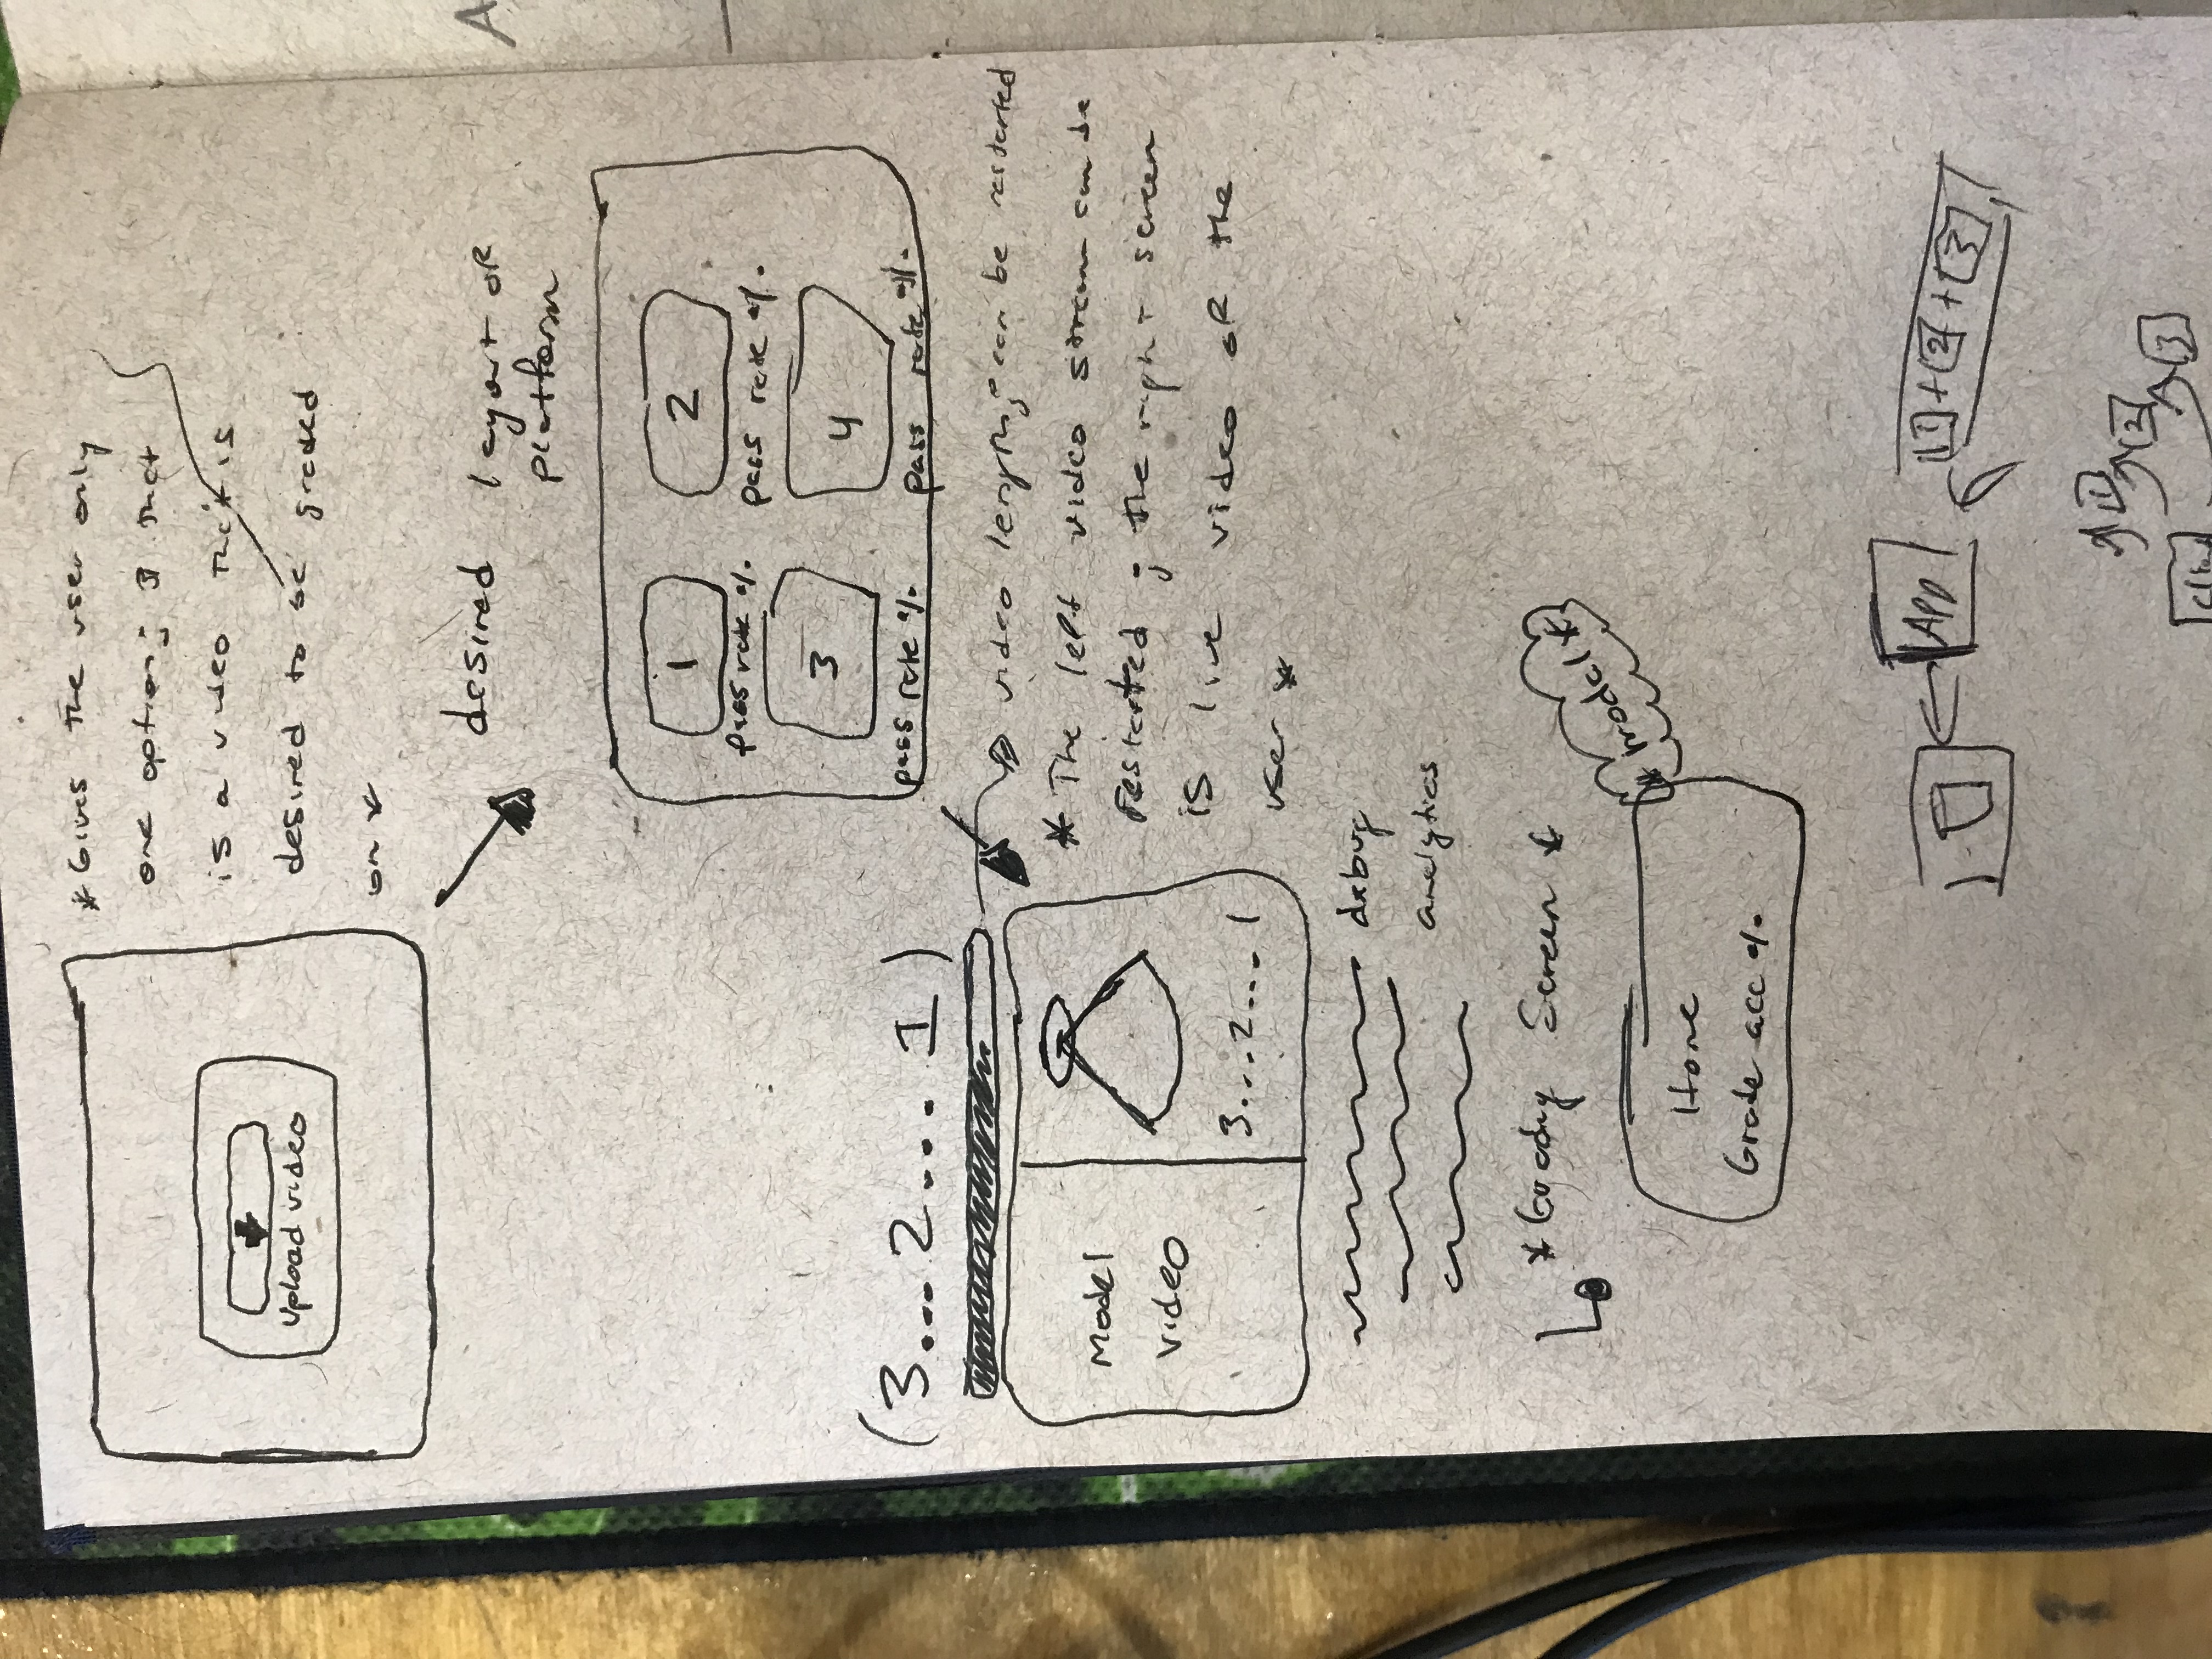 A
* Gives the user only
one option; & that
is a video that is
desired to be graded
on *
upload video
desired layout or
platform
1
2
pass rate %
pass rate %
3
4
pass rate %
pass rate %
(3...2...1)
video length; can be restarted
* The left video stream can be
restarted; the right screen
is live video of the
user *
Model
video
3...2...1
debug
analytics
* Grading Screen *
* model *
Home
Grade acc %
App
1 + 2 + 3
1
2
3